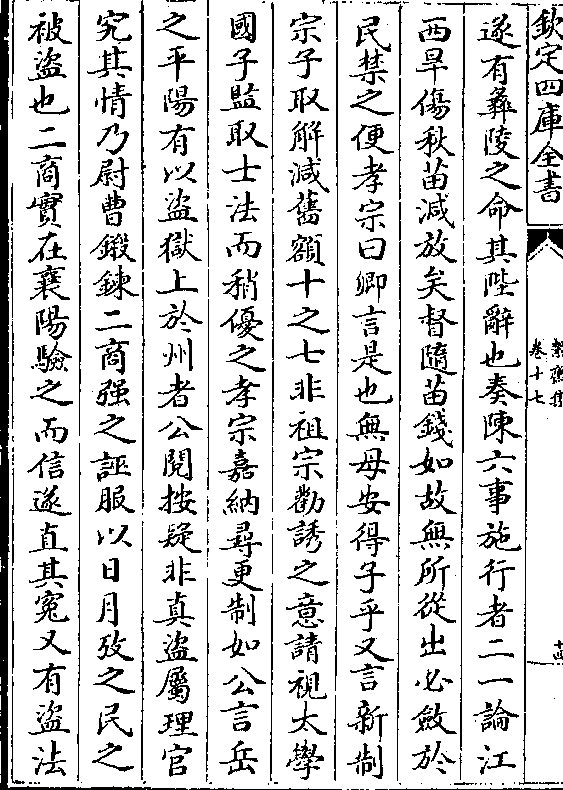 欽定四庫全書
絜齋集
卷十七
十四
遂有彝陵之命其陛辭也奏陳六事施行者二一論江
西旱傷秋苗減放矣督隨苗錢如故無所從出必斂於
民禁之便孝宗曰卿言是也無母安得子乎又言新制
宗子取解減舊額十之七非祖宗勸誘之意請視太學
國子監取士法而稍優之孝宗嘉納尋更制如公言岳
之平陽有以盜獄上於州者公閱按疑非真盜屬理官
究其情乃尉曹鍛鍊二商强之誣服以日月攷之民之
被盜也二商實在襄陽驗之而信遂直其寃又有盜法